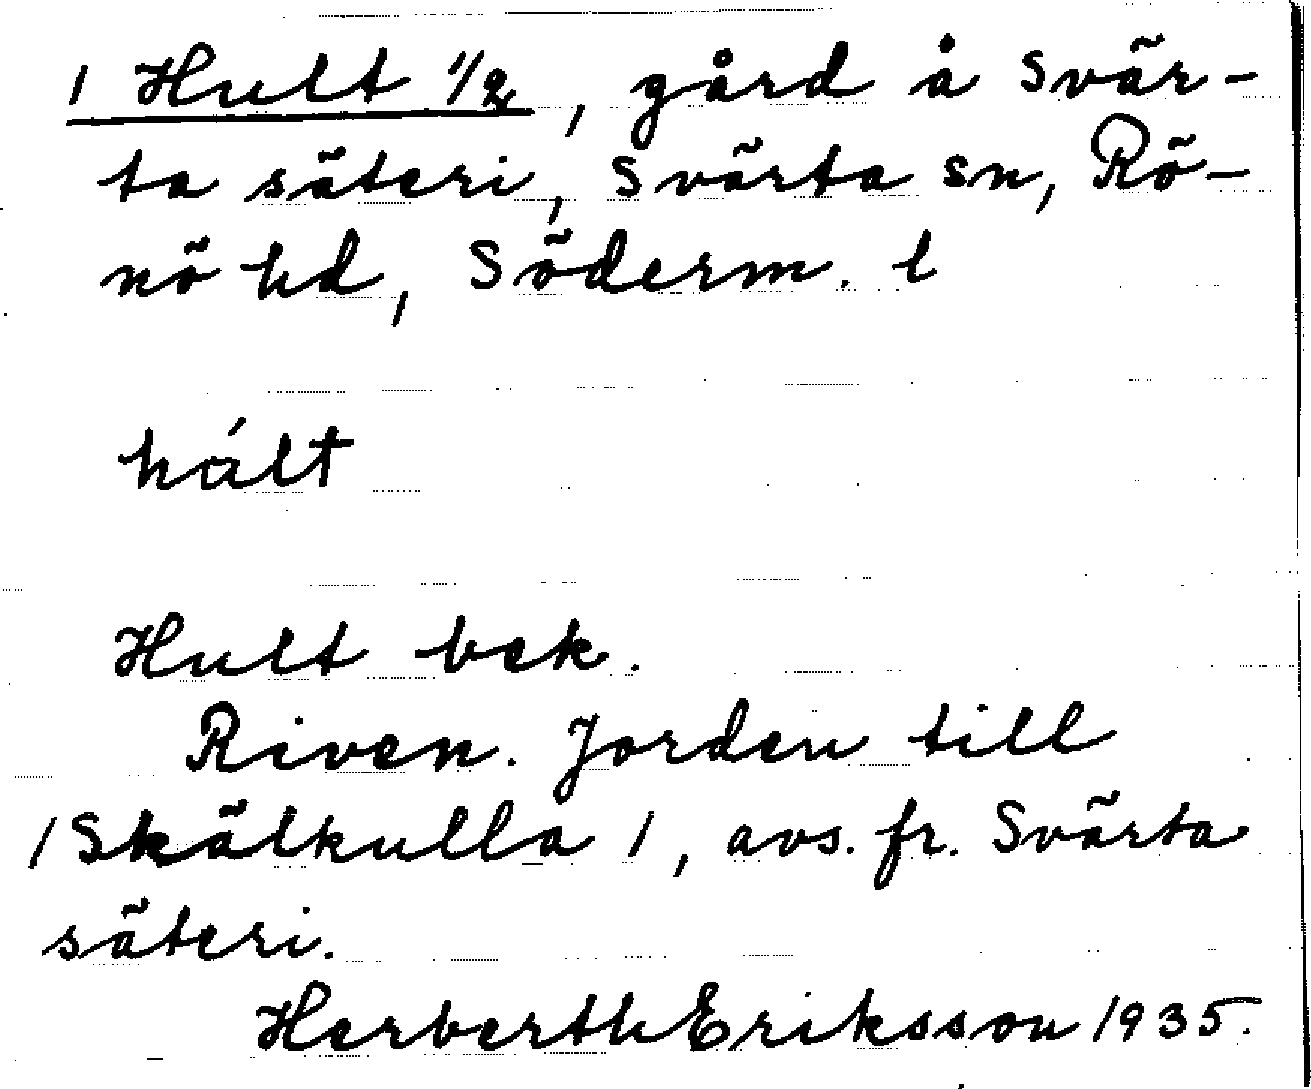 1 Hult 1/2, gård å Svär-
ta säteri, Svärta sn, Rö-
nö hd, Söderm. l
hált
Hult bek.
Riven. Jorden till
/Skälkulla 1, avs. fr. Svärta
säteri.
Herberth Eriksson 1935.